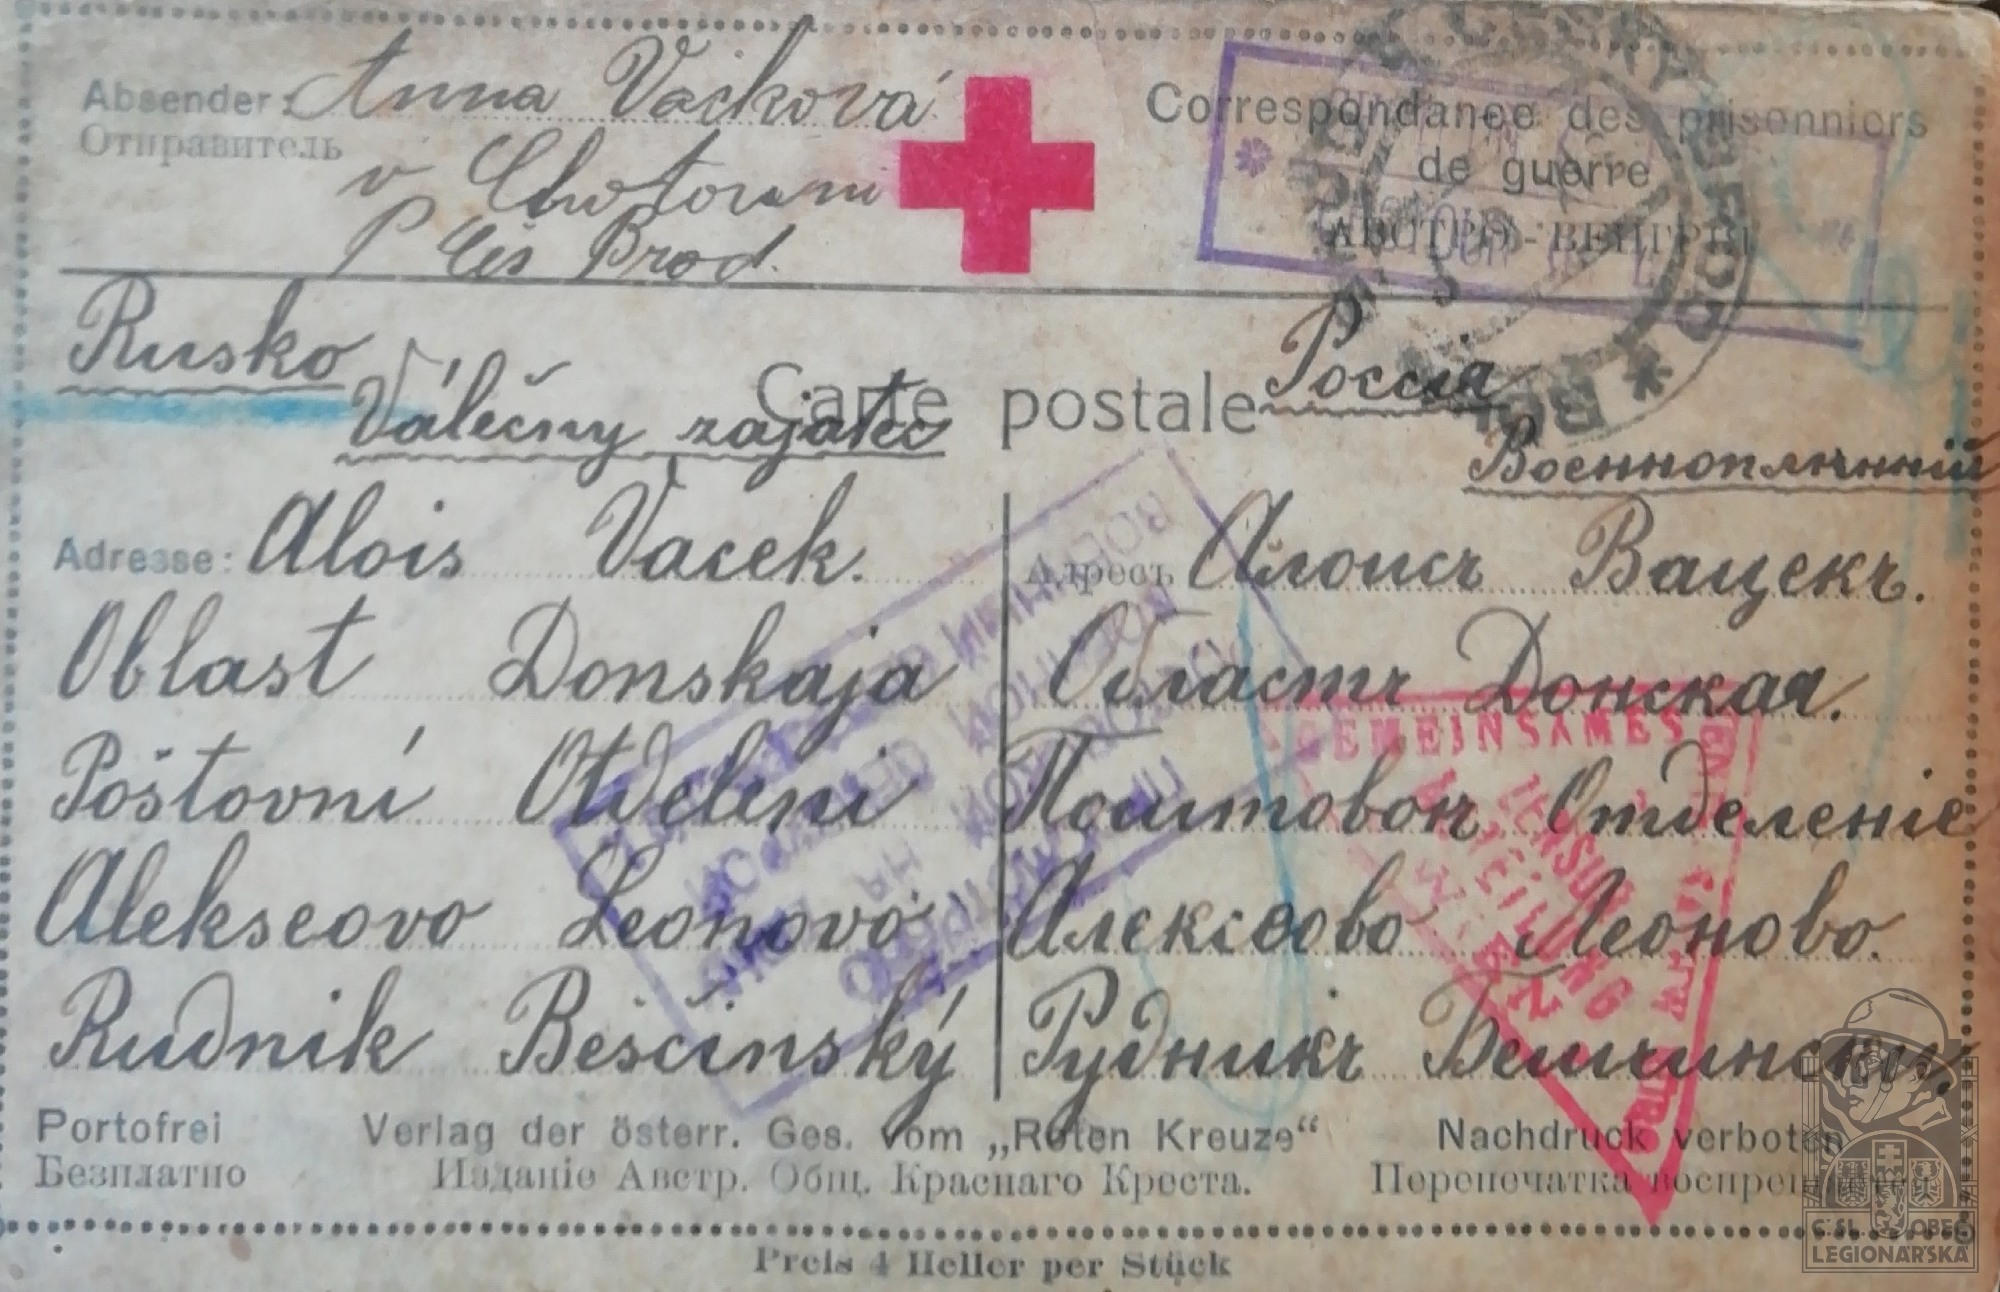 Absender: Anna Vacková
Отправитель
v Chotouni
P Čes Brod.
Correspondance des prisonniers
de guerre
АВСТРО-ВЕНГРІЯ
Rusko
Válečny zajatec
Carte postale
Россія
Военноплѣнній
Adresse: Alois Vacek.
Oblast Donskaja
Poštovní Otdeleni
Alekseovo Leonovo
Rudnik Besčinský
Адресъ Алоисъ Вацекъ.
Область Донская.
Поштовои Отделеніе
Алексеово Леоново.
Рудникъ Бешчински,
GEMEINSAMES
ZENSUR
Portofrei
Безплатно
Verlag der österr. Ges. vom „Roten Kreuze“
Изданіе Австр. Общ. Краснаго Креста.
Nachdruck verboten
Перепечатка воспрещается
Preis 4 Heller per Stück
ČSL. OBEC
LEGIONÁŘSKÁ